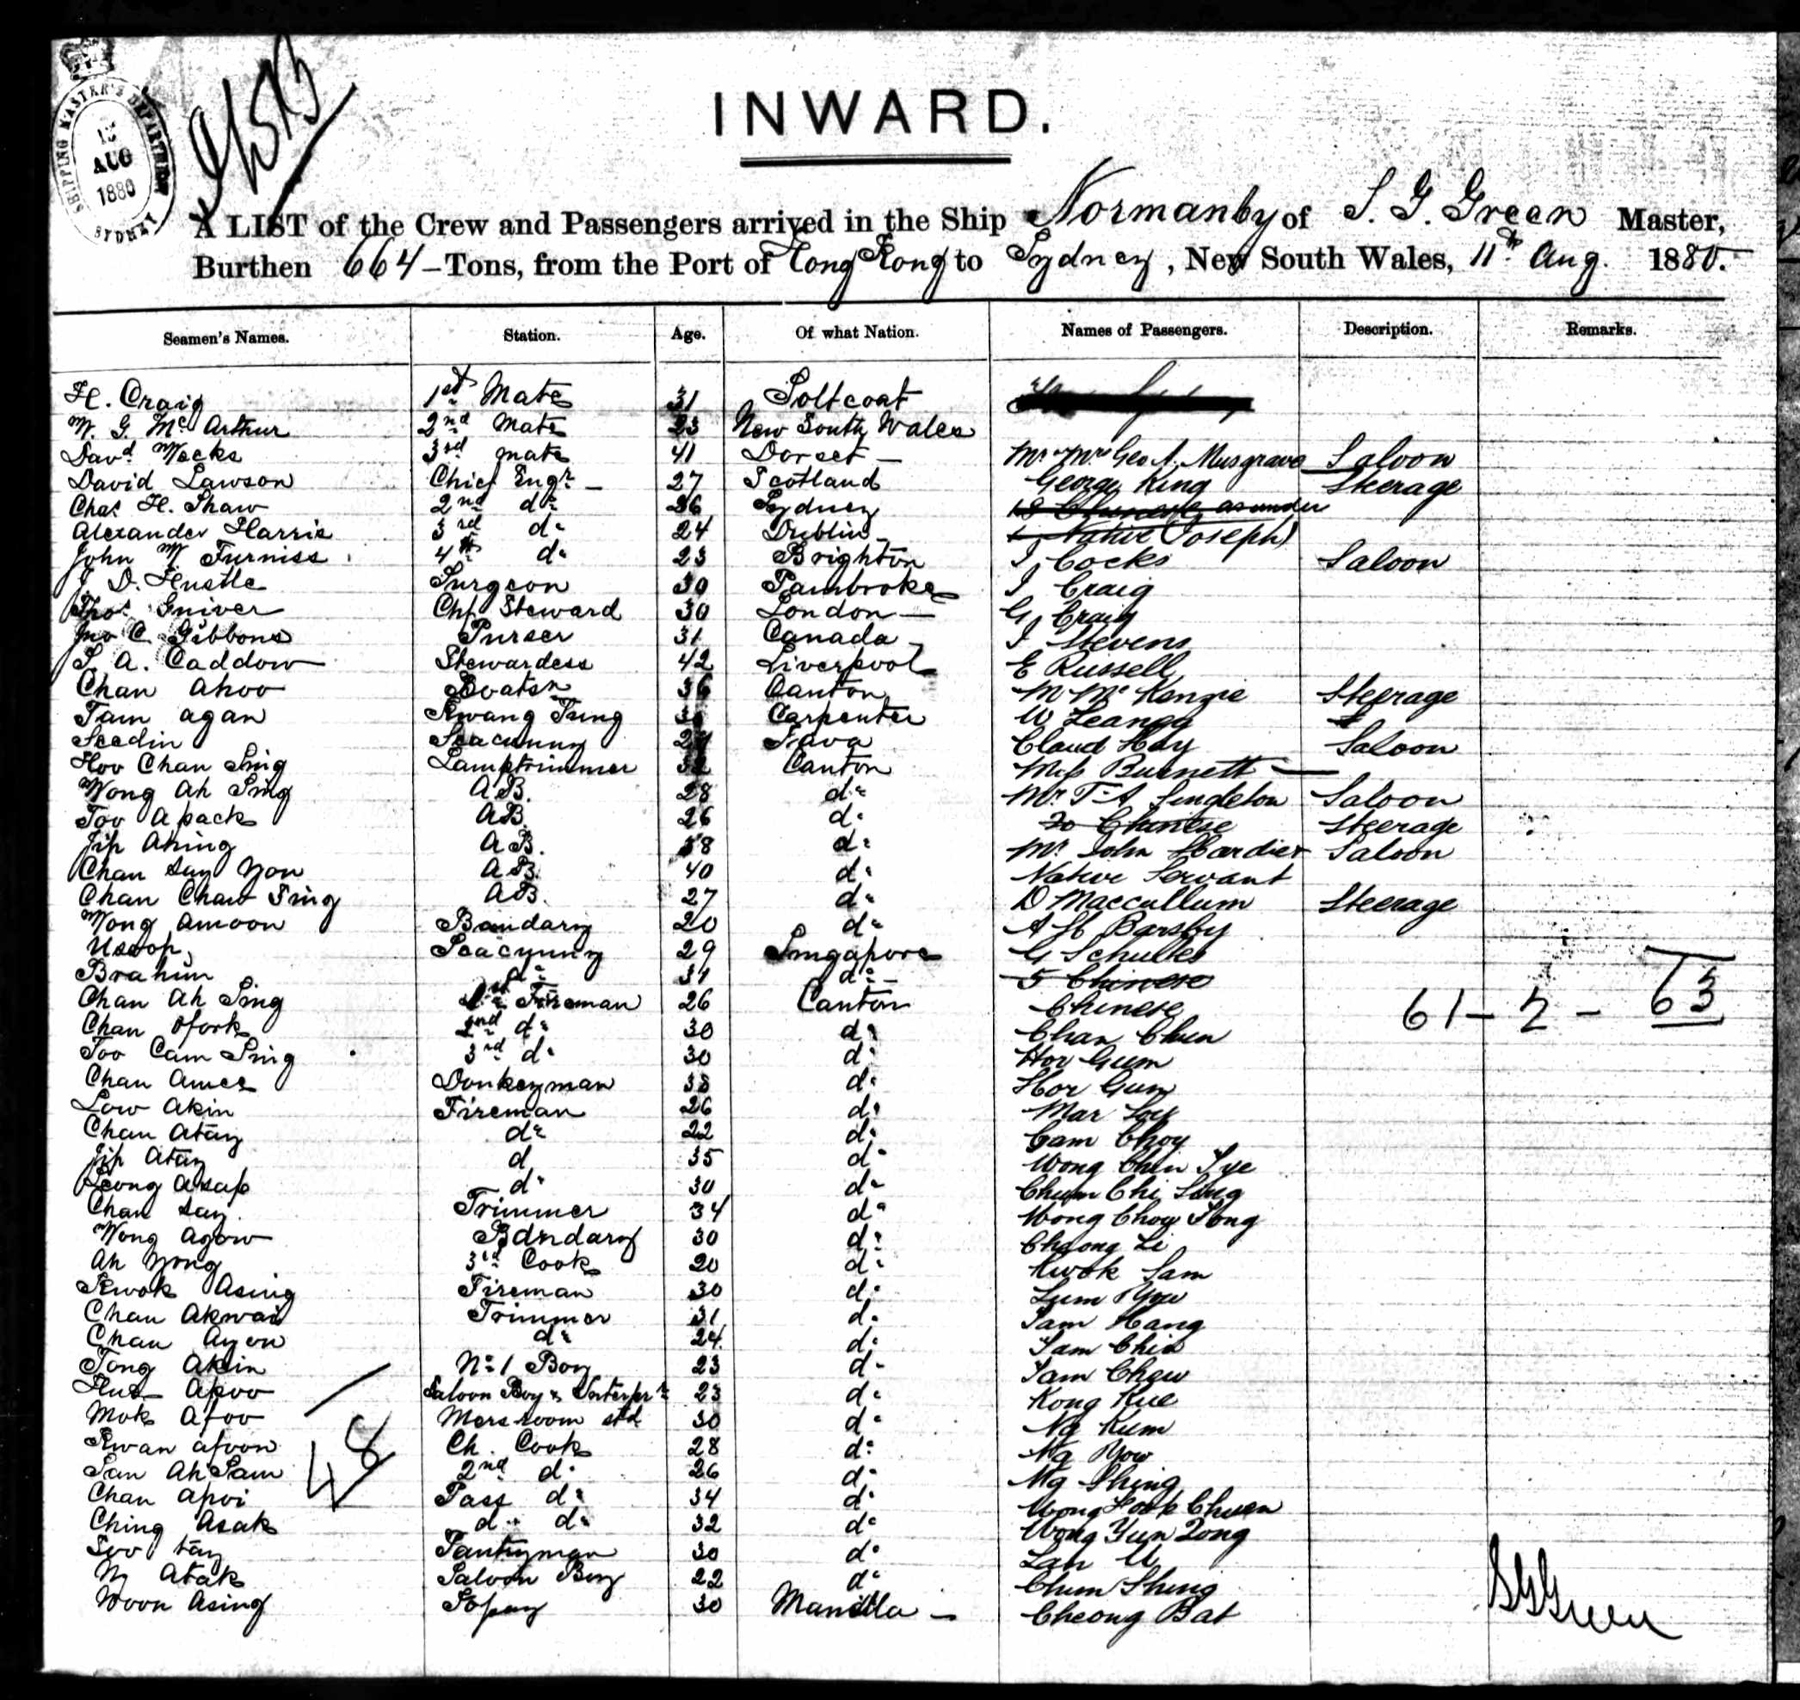 SHIPPING MASTER'S DEPARTMENT
13
AUG
1880
SYDNEY
INWARD.
A LIST of the Crew and Passengers arrived in the Ship Normanby of S. G. Green Master,
Burthen 664 - Tons, from the Port of Hong Kong to Sydney, New South Wales, 11th Aug. 1880.
Seamen's Names. Station. Age. Of what Nation. Names of Passengers. Description. Remarks.
H. Craig 1st Mate 31 Soltcoat
W. G. Mc Arthur 2nd Mate 23 New South Wales
Davd Meeks 3rd Mate 41 Dorset - Mr & Mrs Geo A. Musgrave Saloon
David Lawson Chief Engr - 27 Scotland George King Steerage
Chas H. Shaw 2nd do 26 Sydney Chinese as under
Alexander Harris 3rd do 24 Dublin - 1 Native (Joseph)
John W. Furniss 4th do 23 Brighton J Cocks Saloon
J D. Hustle Surgeon 30 Pembroke J Craig
Thos Gniver Chf Steward 30 London - G Craig
Jno C Gibbons Purser 31 Canada - J Stevens
S. A. Caddow Stewardess 42 Liverpool E Russell
Chan Ahoo Boatsn 36 Canton M McKenzie Steerage
Tam agan Kwang Tung Carpenter W Leangy
Seedin Seacunny Java Claud Hay Saloon
Hoo Chan Sing Lamptrimmer Canton Miss Burnett -
Wong Ah Sing A.B. 28 do Mr T A Singleton Saloon
Too Apack AB. 26 do 20 Chinese Steerage
Jip Aking A B. 38 do Mr John Hardier Saloon
Chan Say Yon A.B. 40 do Native Servant
Chan Chaw Sing AB. 27 do D Maccullum Steerage
Wong Amoon Bandary 20 do A H Barsby
Usoop Seacunny 29 Singapore G Schultes
Brahim do 34 do - 5 Chinese
Chan Ah Sing 1st Fireman 26 Canton Chinese 61 - 2 - 63
Chan Ofork 2nd do 30 do Chan Chun
Too Cam Sing 3rd do 30 do Hor Gum
Chan Amee Donkeyman 38 do Hor Gun
Low Akin Fireman 26 do Mar Loy
Chan Atay do 22 do Cam Choy
Jip Atay d 35 do Wong Chin Tye
Leong Asap do 30 do Chum Chi Sing
Chan Say. Trimmer 34 do Wong Chow Tong
Wong Agow Bandary 30 do Cheong Li
Ah Yong 3rd Cook 20 do Kwok Sam
Kwok Asing Fireman 30 do Lum You
Chan Akwai Trimmer 31 do Tam Hang
Chan Ayen do 24 do Tam Chin
Tong Akin No 1 Boy 23 do Tam Chew
Apoo Saloon Boy & Interpr 23 do Kong Kue
Mok Afoo Messroom Std 30 do Ng Kum
Kwan Afoon Ch. Cook 28 do Ng Yow
San Ah Sam 2nd do 26 do Ng Shing
Chan Apoi Pass do 34 do Wong Look Chuen
Ching Asak do do 32 do Wong Yun Zong
Soo Tay Pantryman 30 do Lah U
Ny Atak Saloon Boy 22 do Chum Shing
Woon Asing Topay 30 Manilla - Cheong Bat
48
SGGreen